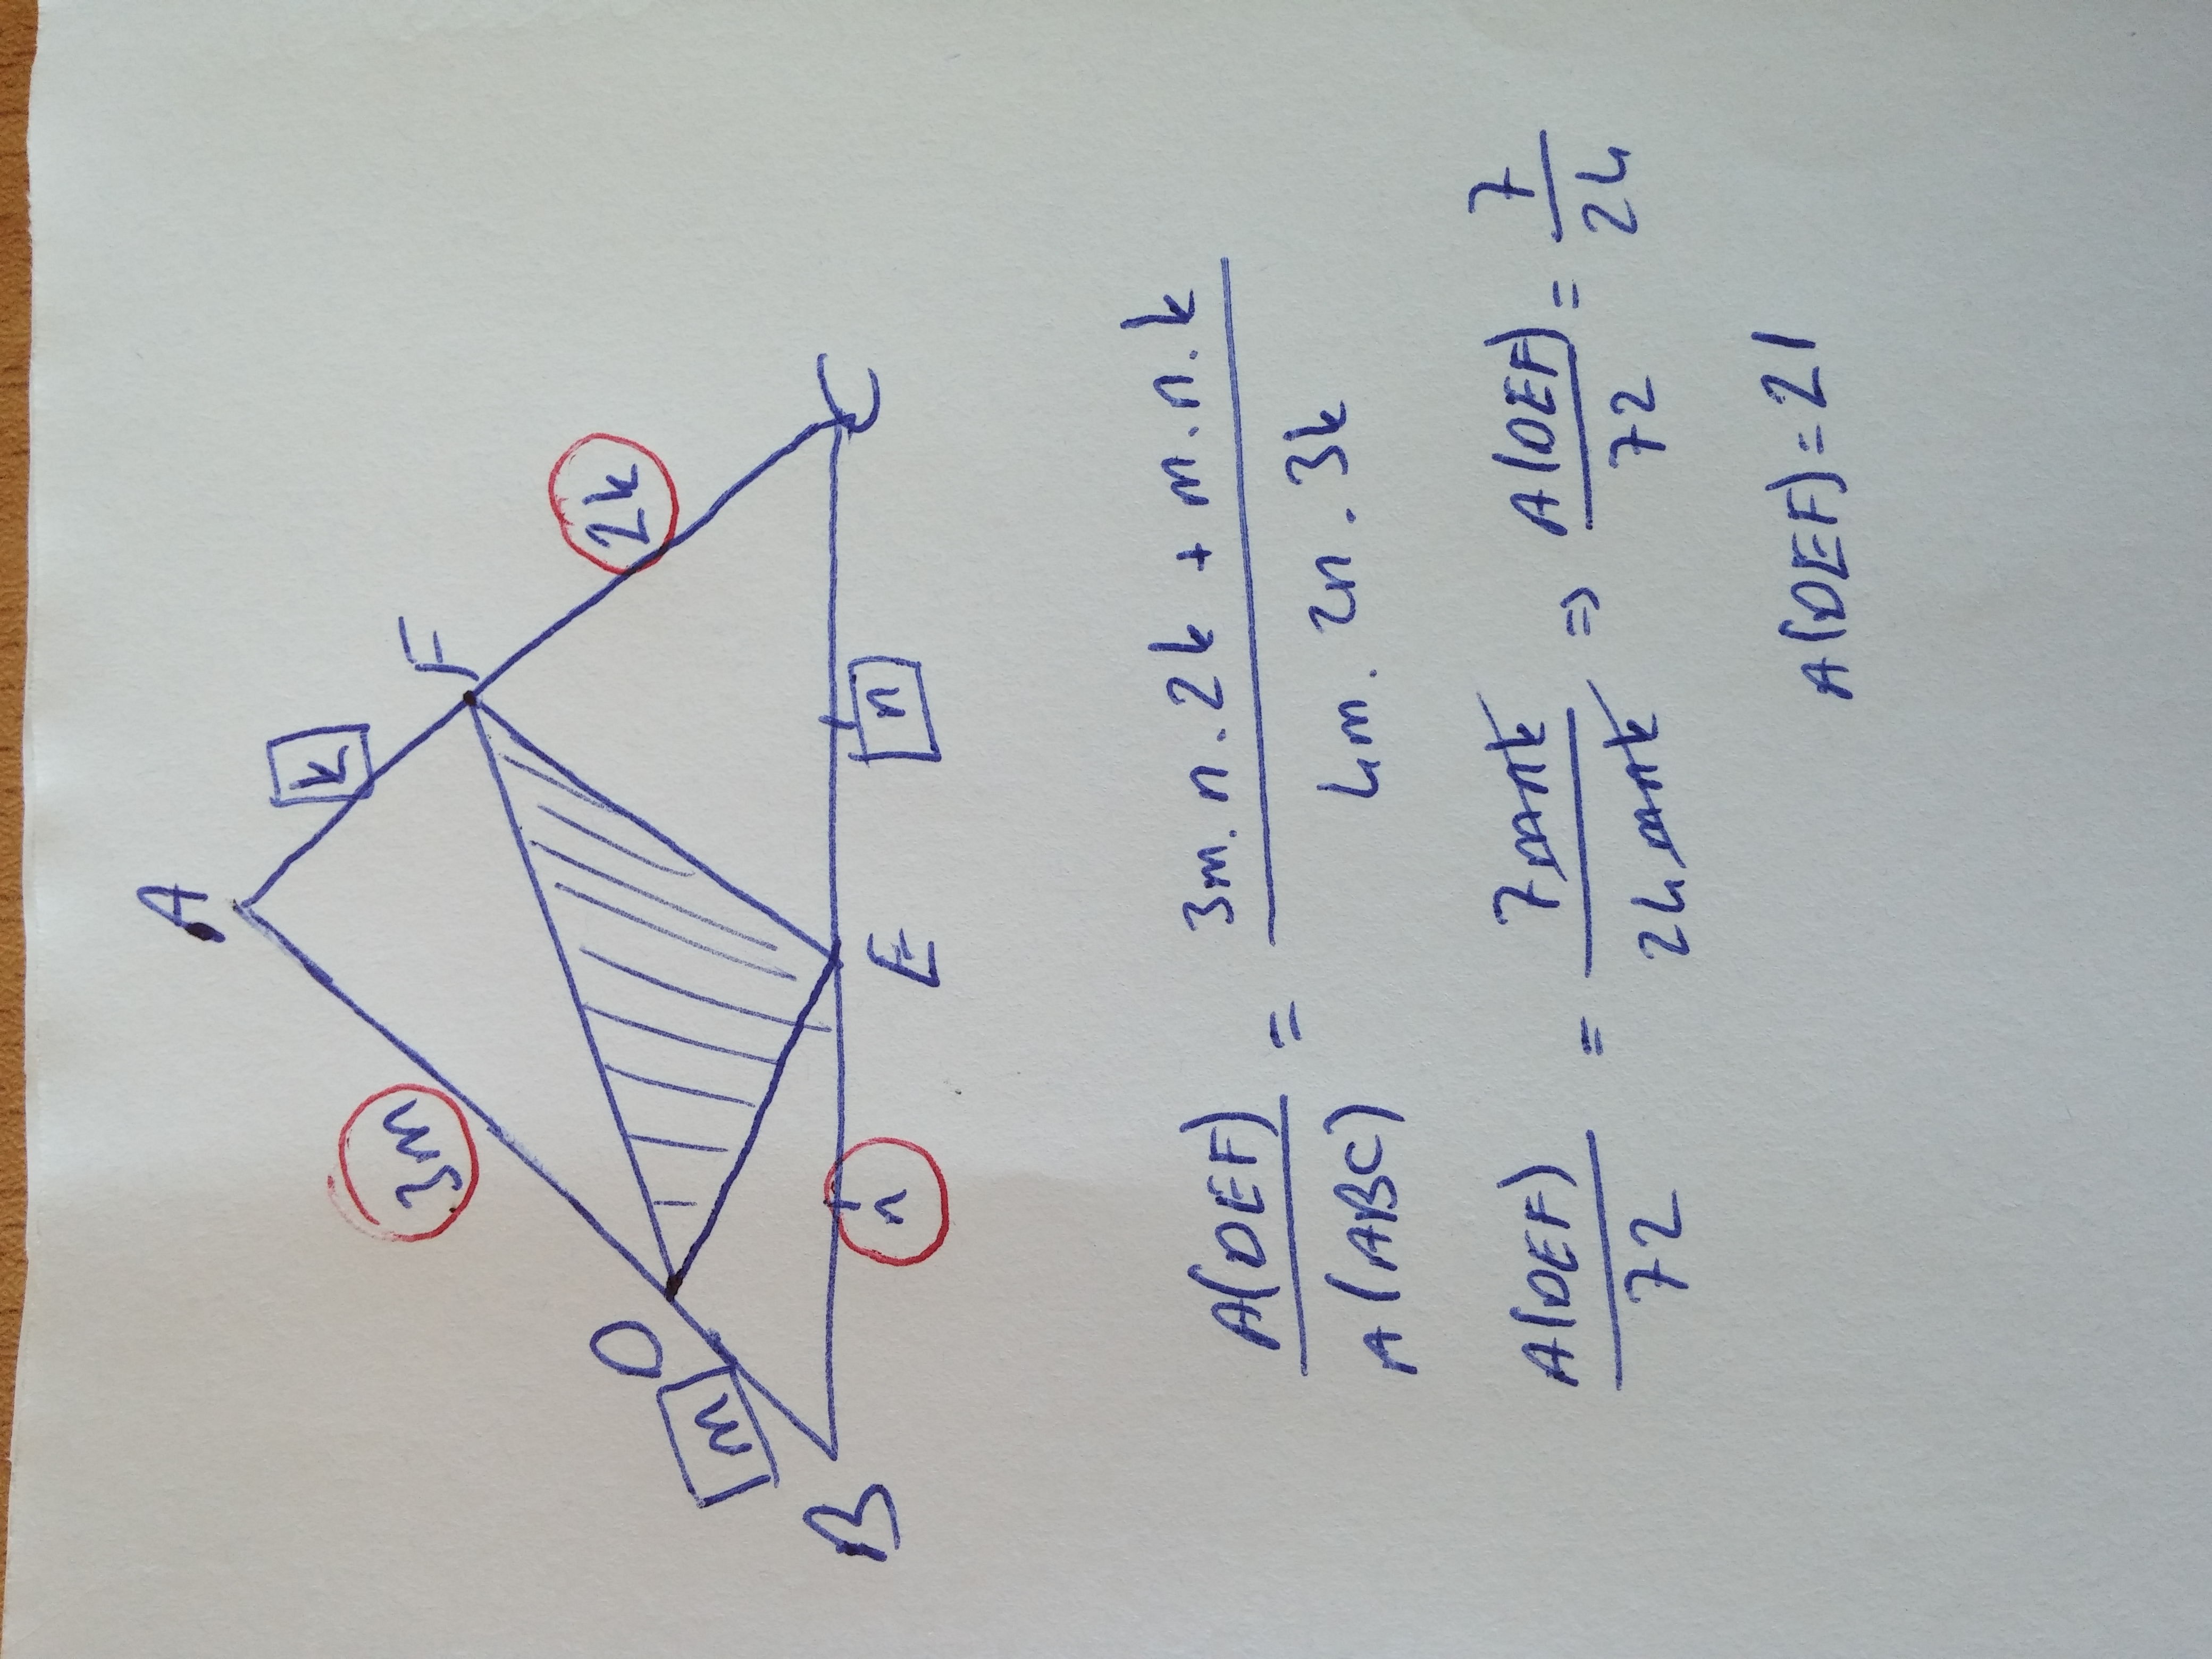 A
3m
k
F
D
2k
m
B
n
E
n
C
A(DEF) / A(ABC) = 3m.n.2k + m.n.k / 4m.2n.3k
A(DEF) / 72 = 7mnk / 24mnk => A(DEF) / 72 = 7 / 24
A(DEF) = 21